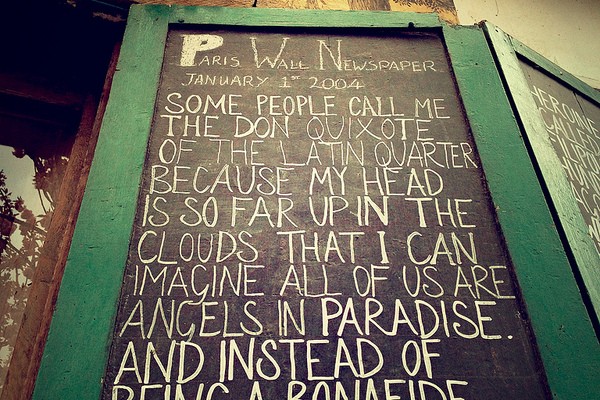 PARIS WALL NEWSPAPER
JANUARY 1ST 2004
SOME PEOPLE CALL ME
THE DON QUIXOTE
OF THE LATIN QUARTER
BECAUSE MY HEAD
IS SO FAR UP IN THE
CLOUDS THAT I CAN
IMAGINE ALL OF US ARE
ANGELS IN PARADISE.
AND INSTEAD OF
BEING A BONAFIDE